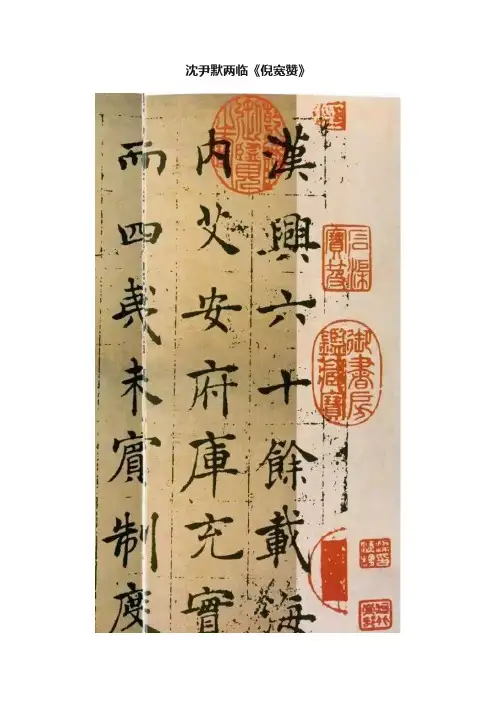 沈尹默两临《倪宽赞》
漢興六十餘載海
内艾安府庫充實
而四夷未賓制度
石渠寶笈
御書房鑑藏寶